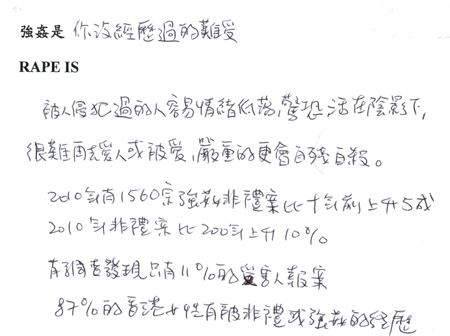 強姦是 你沒經歷過的難受
RAPE IS
被人侵犯過的人容易情緒低落,驚恐活在陰影下,
很難再去愛人或被愛,嚴重的更會自殘自殺。
2010年有1560宗強姦非禮案比十年前上升5成
2010年非禮案比200年上升10%
有調查發現只有11%的受害人報案
87%的香港女性有被非禮或強姦的經歷